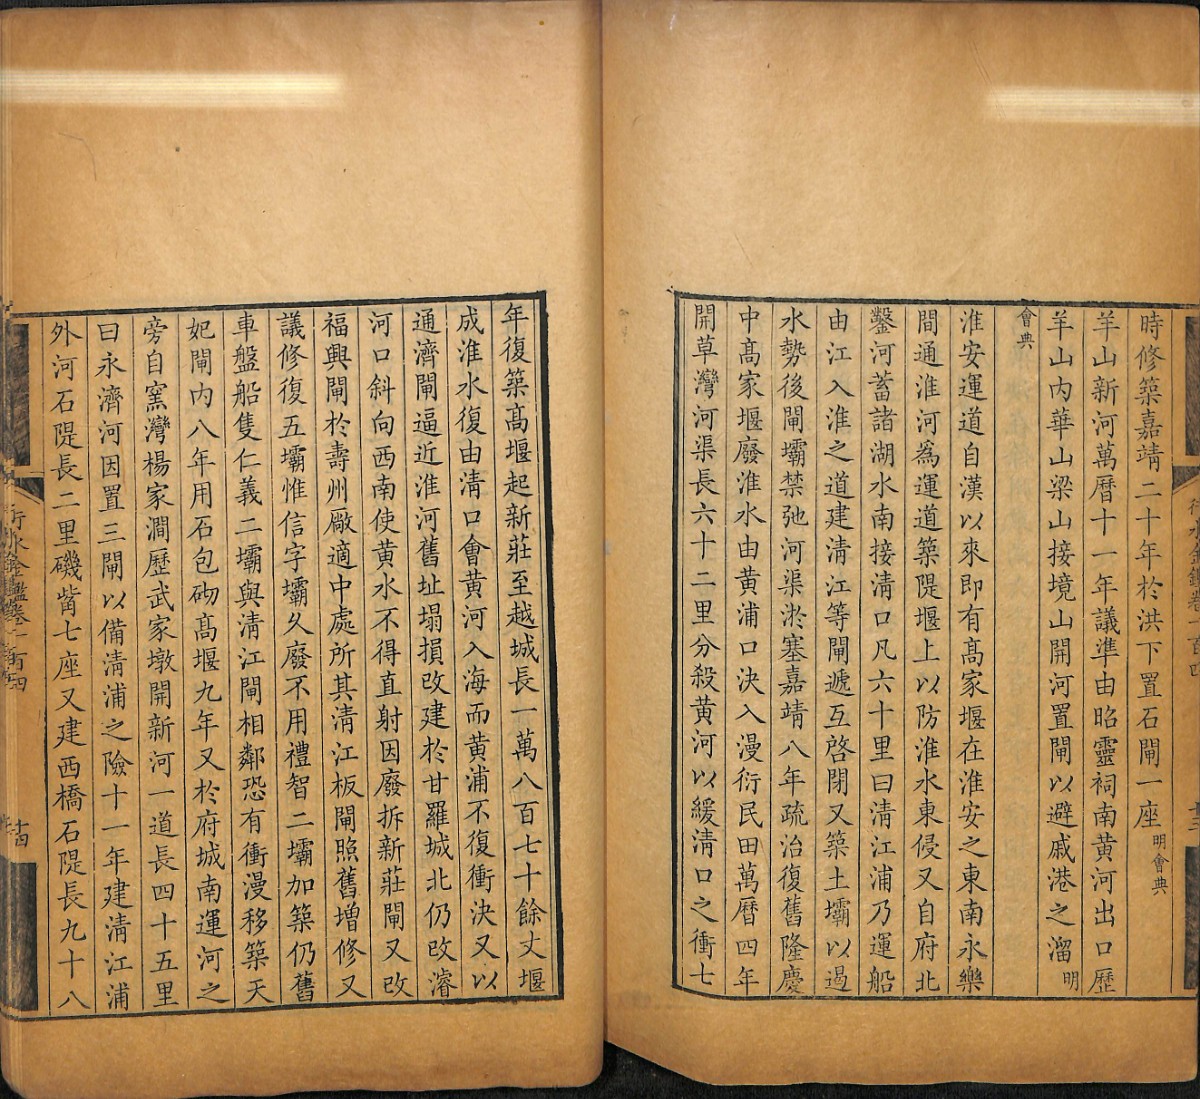 時修築嘉靖二十年於洪下置石閘一座明會典
羊山新河萬曆十一年議準由昭靈祠南黄河出口歷
羊山内華山梁山接境山開河置閘以避戚港之溜明
會典
淮安運道自漢以來即有髙家堰在淮安之東南永樂
間通淮河為運道築隄堰上以防淮水東侵又自府北
鑿河蓄諸湖水南接淸口凡六十里曰淸江浦乃運船
由江入淮之道建淸江等閘遞互啓閉又築土壩以遏
水勢後閘壩禁弛河渠淤塞嘉靖八年疏治復舊隆慶
中髙家堰廢淮水由黄浦口決入漫衍民田萬曆四年
開草灣河渠長六十二里分殺黄河以緩淸口之衝七
年復築髙堰起新莊至越城長一萬八百七十餘丈堰
成淮水復由淸口會黄河入海而黄浦不復衝決又以
通濟閘逼近淮河舊址塌損改建於甘羅城北仍改濬
河口斜向西南使黄水不得直射因廢拆新莊閘又改
福興閘於壽州厰適中處所其淸江板閘照舊增修又
議修復五壩惟信字壩久廢不用禮智二壩加築仍舊
車盤船隻仁義二壩與淸江閘相鄰恐有衝漫移築天
妃閘内八年用石包砌髙堰九年又於府城南運河之
旁自窯灣楊家澗歷武家墩開新河一道長四十五里
曰永濟河因置三閘以備淸浦之險十一年建淸江浦
外河石隄長二里磯觜七座又建西橋石隄長九十八
行水金鑑卷一百四
十四